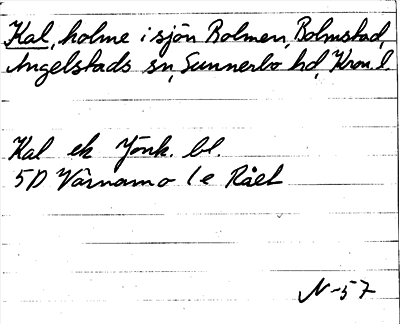 Kal, holme i sjön Bolmen, Bolmstad,
Angelstads sn, Sunnerbo hd, Kron. l.
Kal ek Jönk. bl.
5D Värnamo 1e Rået
N-57